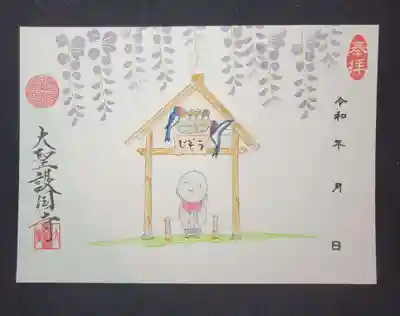 奉拝
令和 年 月 日
じぞう
大聖護国寺